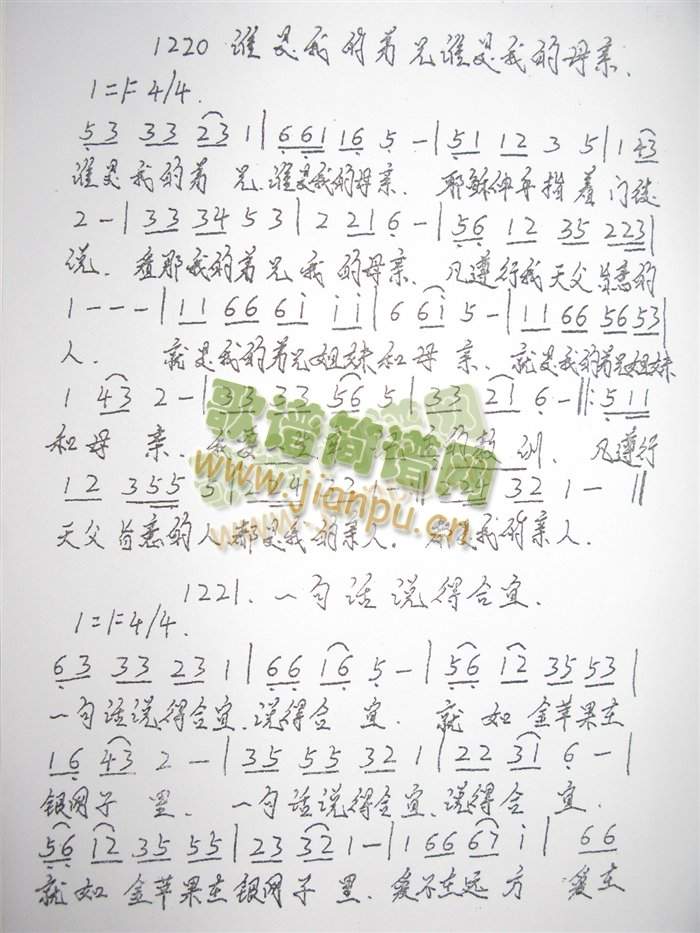 1220 谁是我的弟兄谁是我的母亲.
1=F 4/4.
53 33 23 1 | 661 16 5 - | 51 12 3 5 | 1 43
谁是我的弟兄.谁是我的母亲. 耶稣伸手指着门徒
2 - | 33 34 5 3 | 2 21 6 - | 56 12 35 223 |
说.看那我的弟兄我的母亲.凡遵行我天父旨意的
1 - - - | 11 66 6i ii | 6 6i 5 - | 11 66 56 53 |
人. 就是我的弟兄姐妹和母亲.就是我的弟兄姐妹
1 43 2 - | 33 33 56 5 | 33 21 6 - ‖: 511
和母亲. 训. 凡遵行
12 355 5 | 32 1 - ‖
天父旨意的人都是我的亲人. 我的亲人.
歌谱简谱网
www.jianpu.cn
1221. 一句话说得合宜.
1=F 4/4.
63 33 23 1 | 66 16 5 - | 56 12 35 53 |
一句话说得合宜.说得合宜. 就如金苹果在
16 43 2 - | 35 55 32 1 | 22 31 6 - |
银网子里. 一句话说得合宜.说得合宜.
56 12 35 55 | 23 32 1 - | 1 66 67 i | 66
就如金苹果在银网子里.爱不在远方 爱在